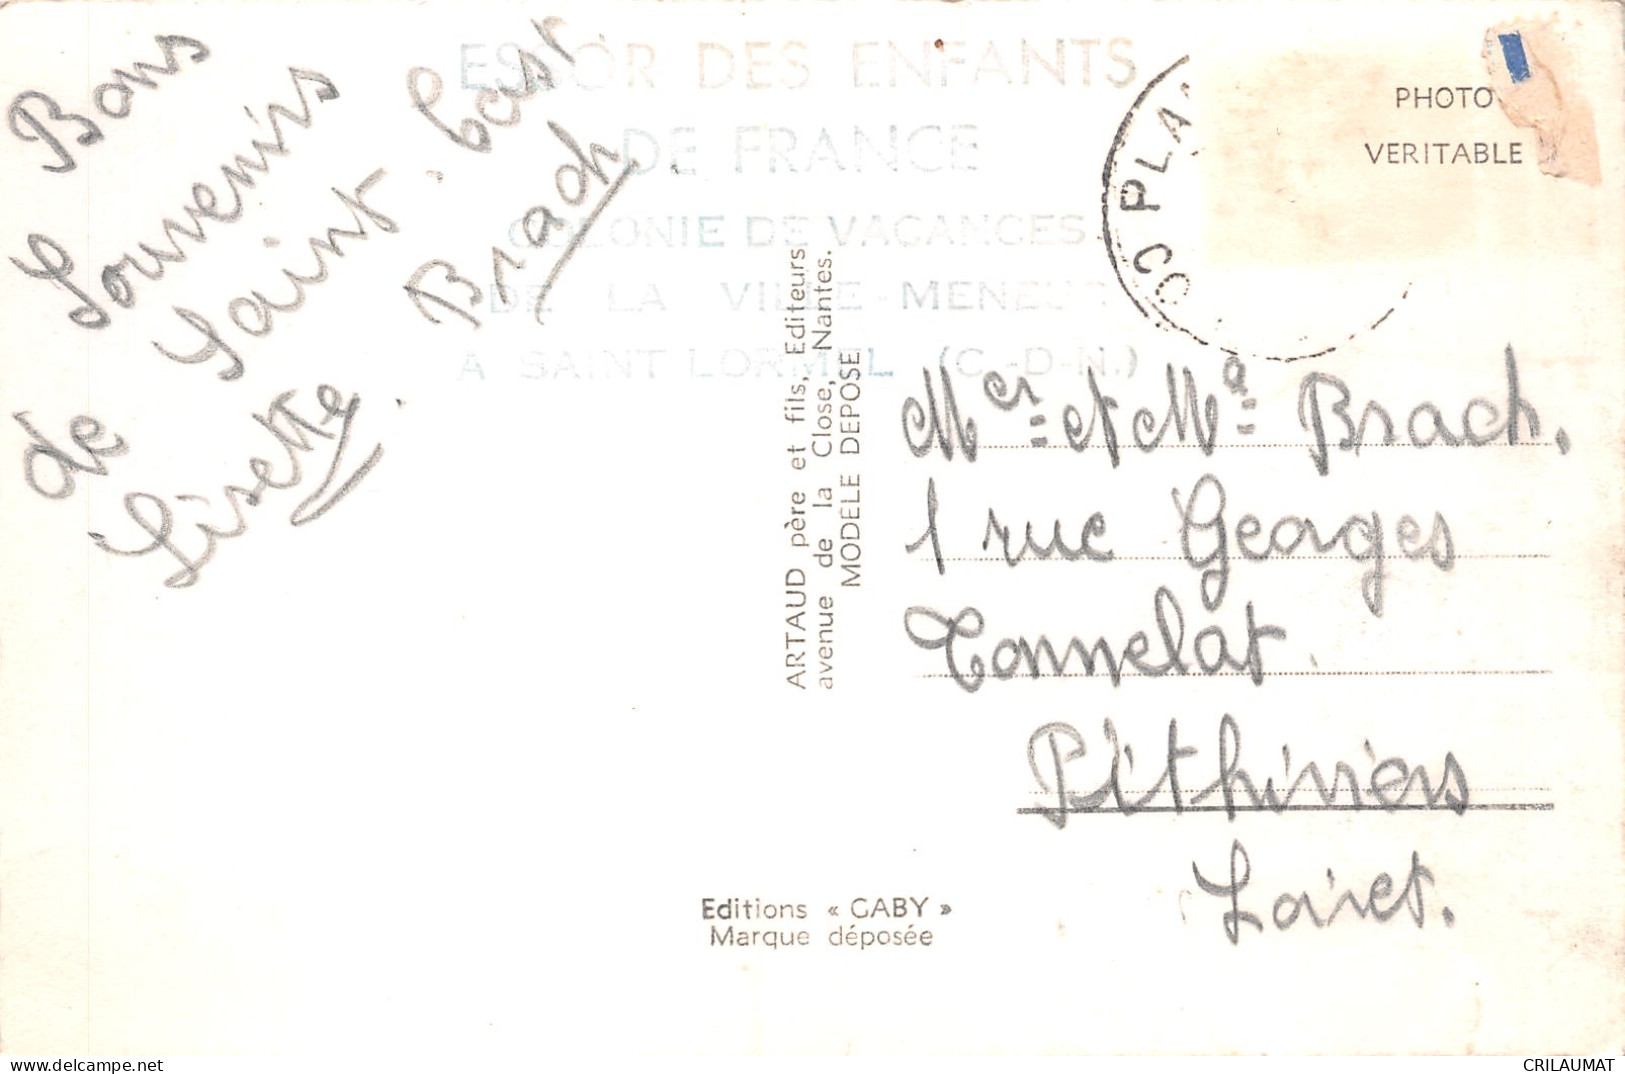 Bons
Souvenirs
de Saint. Cast
Lisette. Brach
ESSOR DES ENFANTS
DE FRANCE
COLONIE DE VACANCES
DE LA VILLE-MENEUC
A SAINT LORMEL (C.-D-N.)
PHOTO
VERITABLE
CO PLA
ARTAUD père et fils, Editeurs
avenue de la Close, Nantes.
MODÈLE DEPOSE
Mer et Me Brach.
1 rue Georges
Tonnelat.
Pithiviers
Loiret.
Editions « GABY »
Marque déposée
delcampe.net
CRILAUMAT